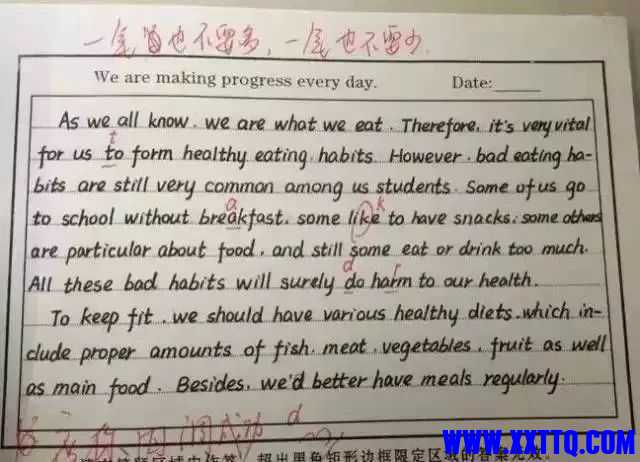 We are making progress every day. Date:
t
As we all know, we are what we eat. Therefore, it's very vital
for us to form healthy eating habits. However, bad eating ha-
bits are still very common among us students. Some of us go
a k
to school without breakfast, some like to have snacks, some others
are particular about food, and still some eat or drink too much.
d r
All these bad habits will surely do harm to our health.
To keep fit, we should have various healthy diets, which in-
clude proper amounts of fish, meat, vegetables, fruit as well
as main food. Besides, we'd better have meals regularly.
d
超出黑色矩形边框限定区域的答案无效
WWW.XXTTQ.COM